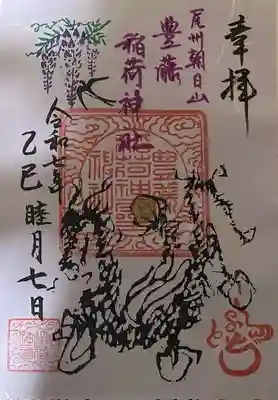 奉拝
尾州朝日山
豊藤
稲荷神社
令和七年
乙巳 睦月七日